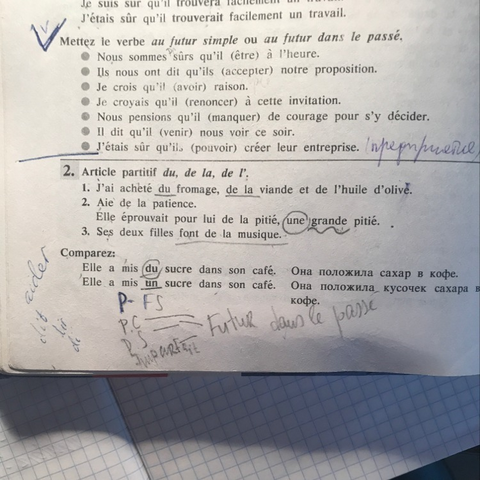 Je suis sûr qu'il trouvera facilement un
J'étais sûr qu'il trouverait facilement un travail.
Mettez le verbe au futur simple ou au futur dans le passé.
● Nous sommes sûrs qu'il (être) à l'heure.
● Ils nous ont dit qu'ils (accepter) notre proposition.
● Je crois qu'il (avoir) raison.
● Je croyais qu'il (renoncer) à cette invitation.
● Nous pensions qu'il (manquer) de courage pour s'y décider.
● Il dit qu'il (venir) nous voir ce soir.
● J'étais sûr qu'ils (pouvoir) créer leur entreprise. (предприятие)
2. Article partitif du, de la, de l'.
1. J'ai acheté du fromage, de la viande et de l'huile d'olive.
2. Aie de la patience.
Elle éprouvait pour lui de la pitié, une grande pitié.
3. Ses deux filles font de la musique.
Comparez:
Elle a mis du sucre dans son café. Она положила сахар в кофе.
Elle a mis un sucre dans son café. Она положила кусочек сахара в
кофе.
P- FS
P.C
Futur dans le passe
P.S